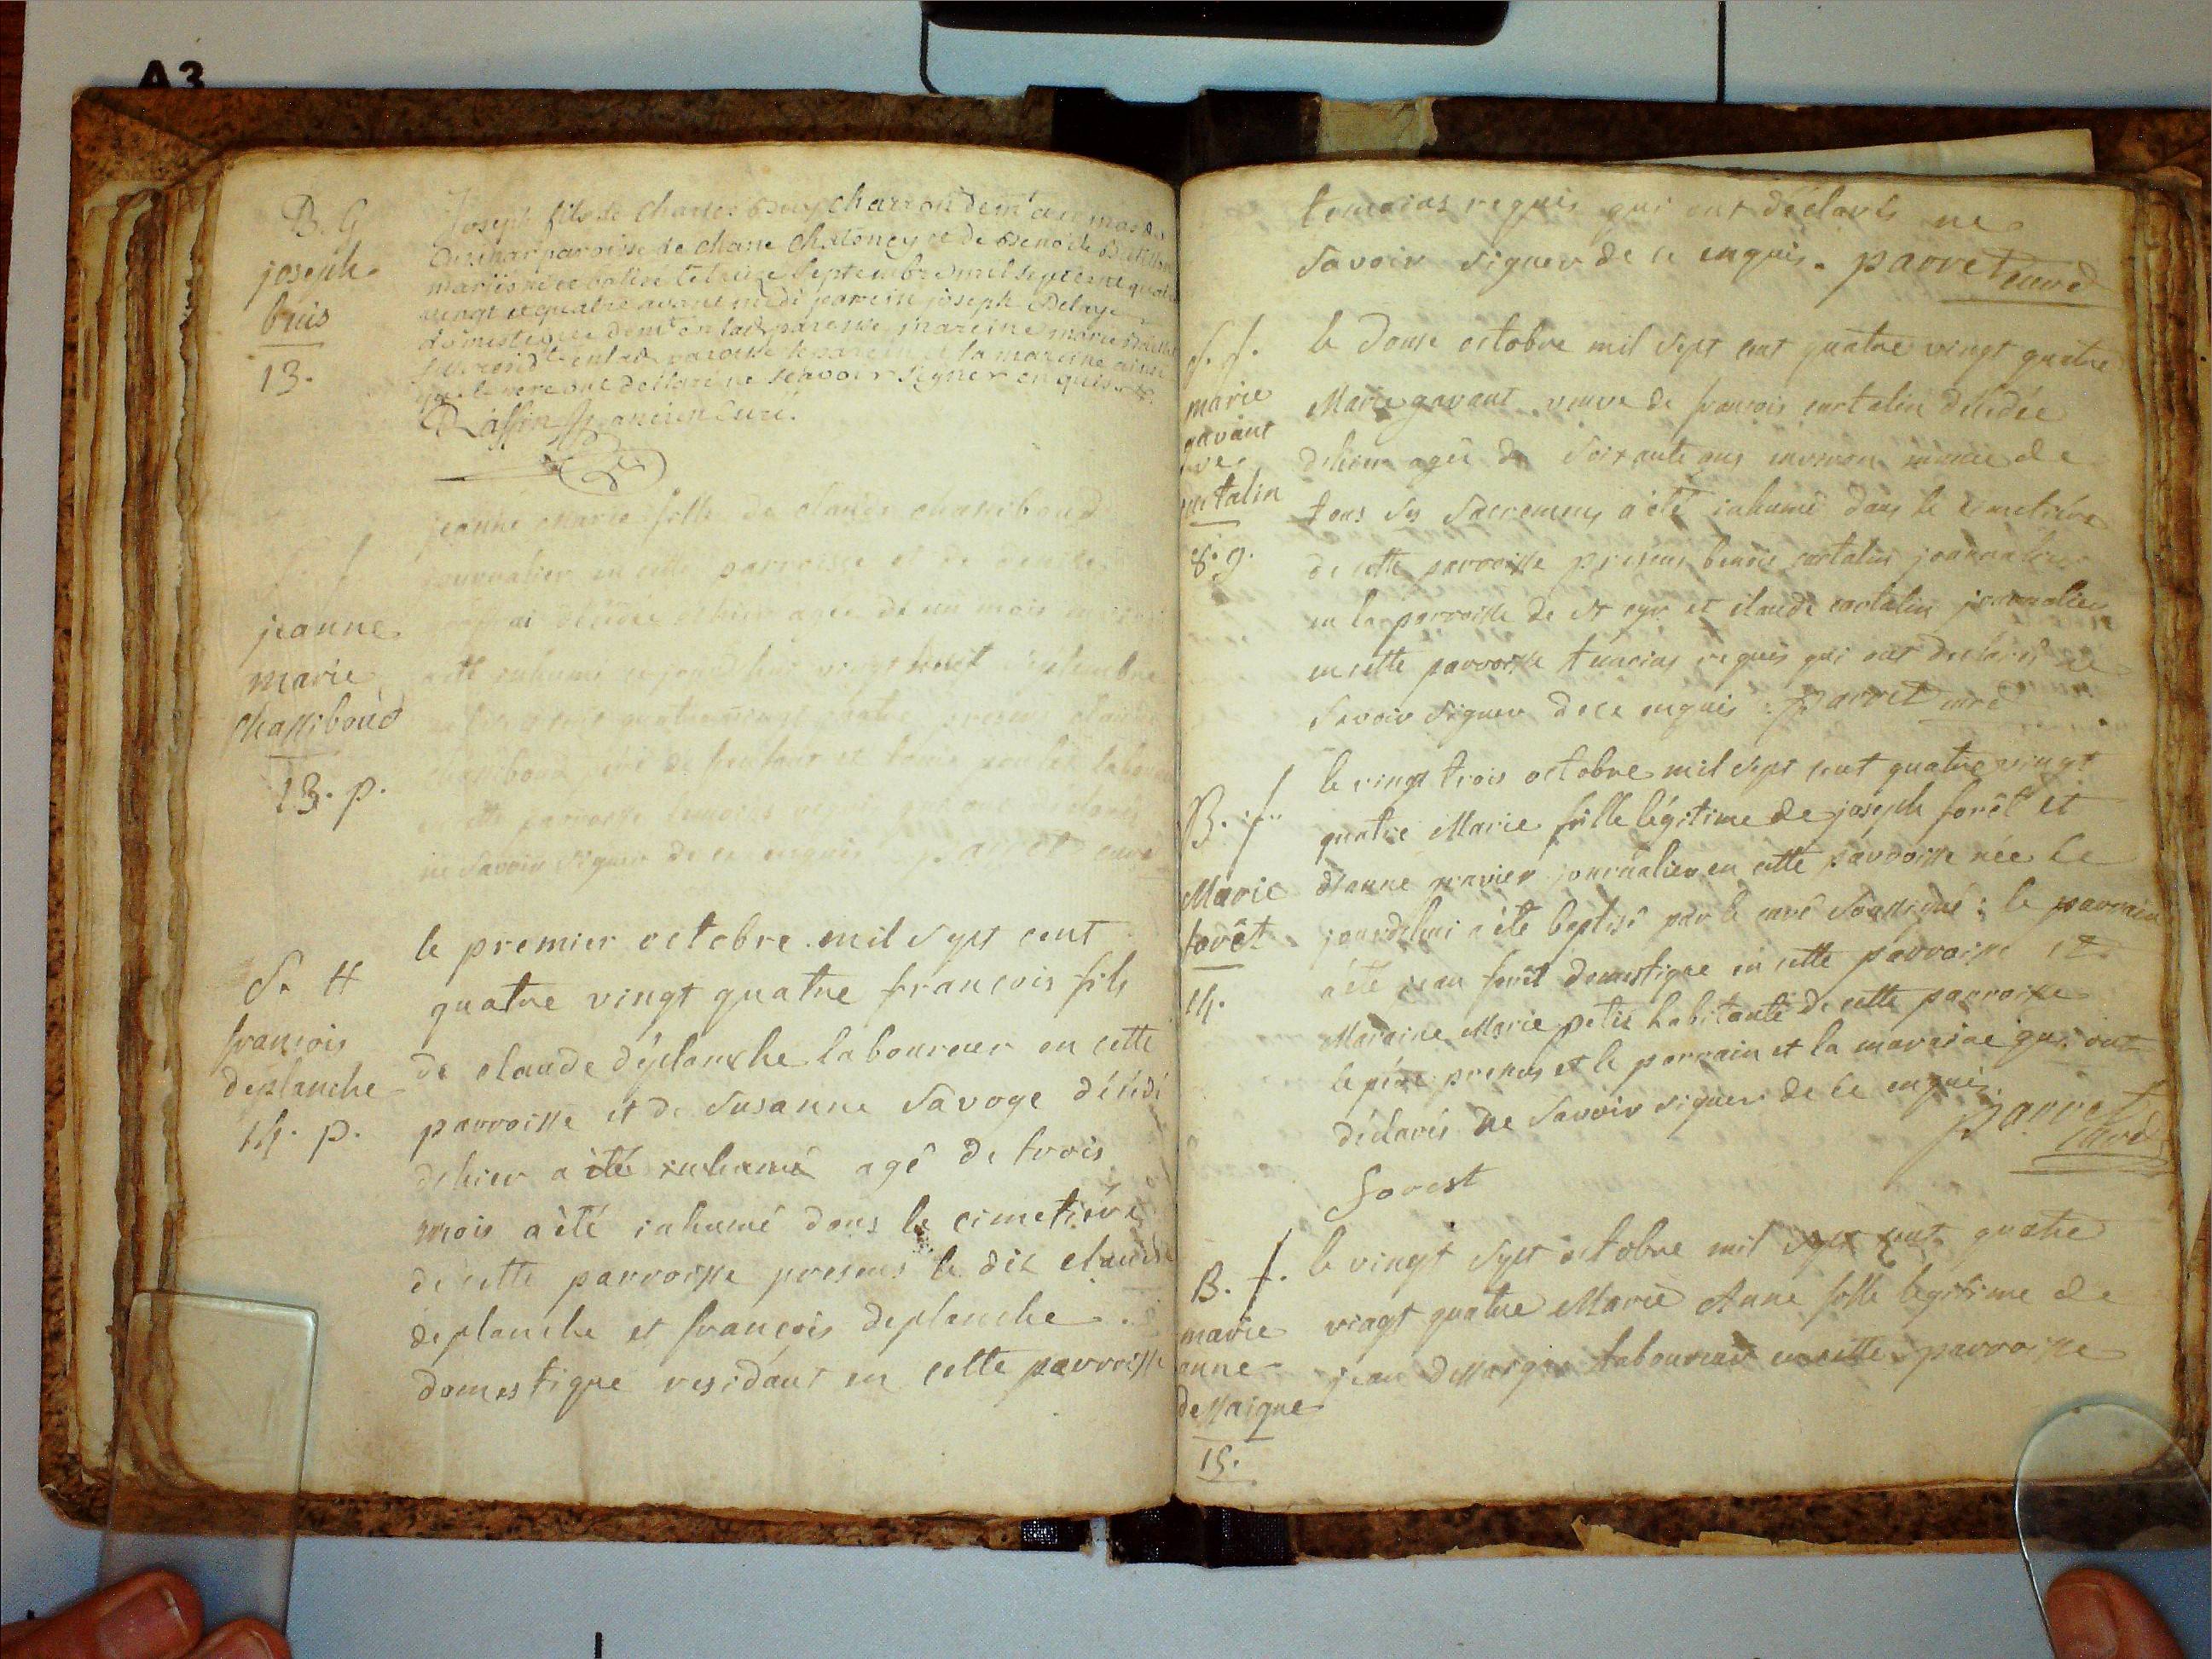 A3
B. G
joseph
buis
13.
Joseph fils de Charles Buy charron demt au mas de
paroisse de chane Chatoney et de Benoite
mariés né et batisé le treize Septembre mil septcent quatre
vingt et quatre avant midi parein joseph Delaye
domestique demt en lad paroisse mareine marie
residte en lad paroisse le parein et la mareine ainsi
que le pere ont declaré ne scavoir signer enquis
Raffin ancien Curé.
jeanne
marie
Chassiboud
13. p.
jeanne marie fille de claude chassiboud
journalier en cette parroisse et de
décédée dehier agée de un mois
a été inhumé aujourdhui vingt huit septembre
mil quatre vingt quatre presens claude
chassiboud père de l'enfant et
en cette parroisse temoins requis qui ont déclaré
ne savoir signer de ce enquis parret curé
S. H
francois
deplanche
14. p.
le premier octobre mil sept cent
quatre vingt quatre francois fils
de claude déplanche laboureur en cette
parroisse et de Susanne Savoge décédé
dehier a été inhumé agé de trois
mois a été inhumé dans le cimetière
de cette parroisse presens le dit claude
deplanche et françois deplanche
domestique residant en cette parroisse
temoins requis qui ont déclarés ne
savoir signer de ce enquis. parret curé
S. f.
marie
gavant
ve
curtalin
8. g.
le douse octobre mil sept cent quatre vingt quatre
Marie gavant veuve de francois curtalin décédée
dehier agée de soixante ans environ munie de
tous ses sacremens a été inhumé dans le cimetière
de cette parroisse presens benoit curtalin journalier
en la parroisse de st cyr et claude curtalin journalier
en cette parroisse témoins requis qui ont declarés ne
savoir signer de ce enquis. parret curé
B. f.
Marie
forêt
14.
le vingt trois octobre mil sept cent quatre vingt
quatre Marie fille légitime de joseph forêt et
d'anne gravier journalier en cette parroisse née le
jourdhui a été baptisé par le curé soussigné : le parrain
a été jean forêt domestique en cette parroisse et
Maraine Marie petit habitante de cette parroisse
le père presens et le parrain et la maraine qui ont
déclarés ne savoir signer de ce enquis.
parret
curé
forest
B. f.
marie
anne
dessaigne
15.
le vingt sept octobre mil sept cent quatre
vingt quatre Marie Anne fille legitime de
jean dessaigne laboureur en cette parroisse